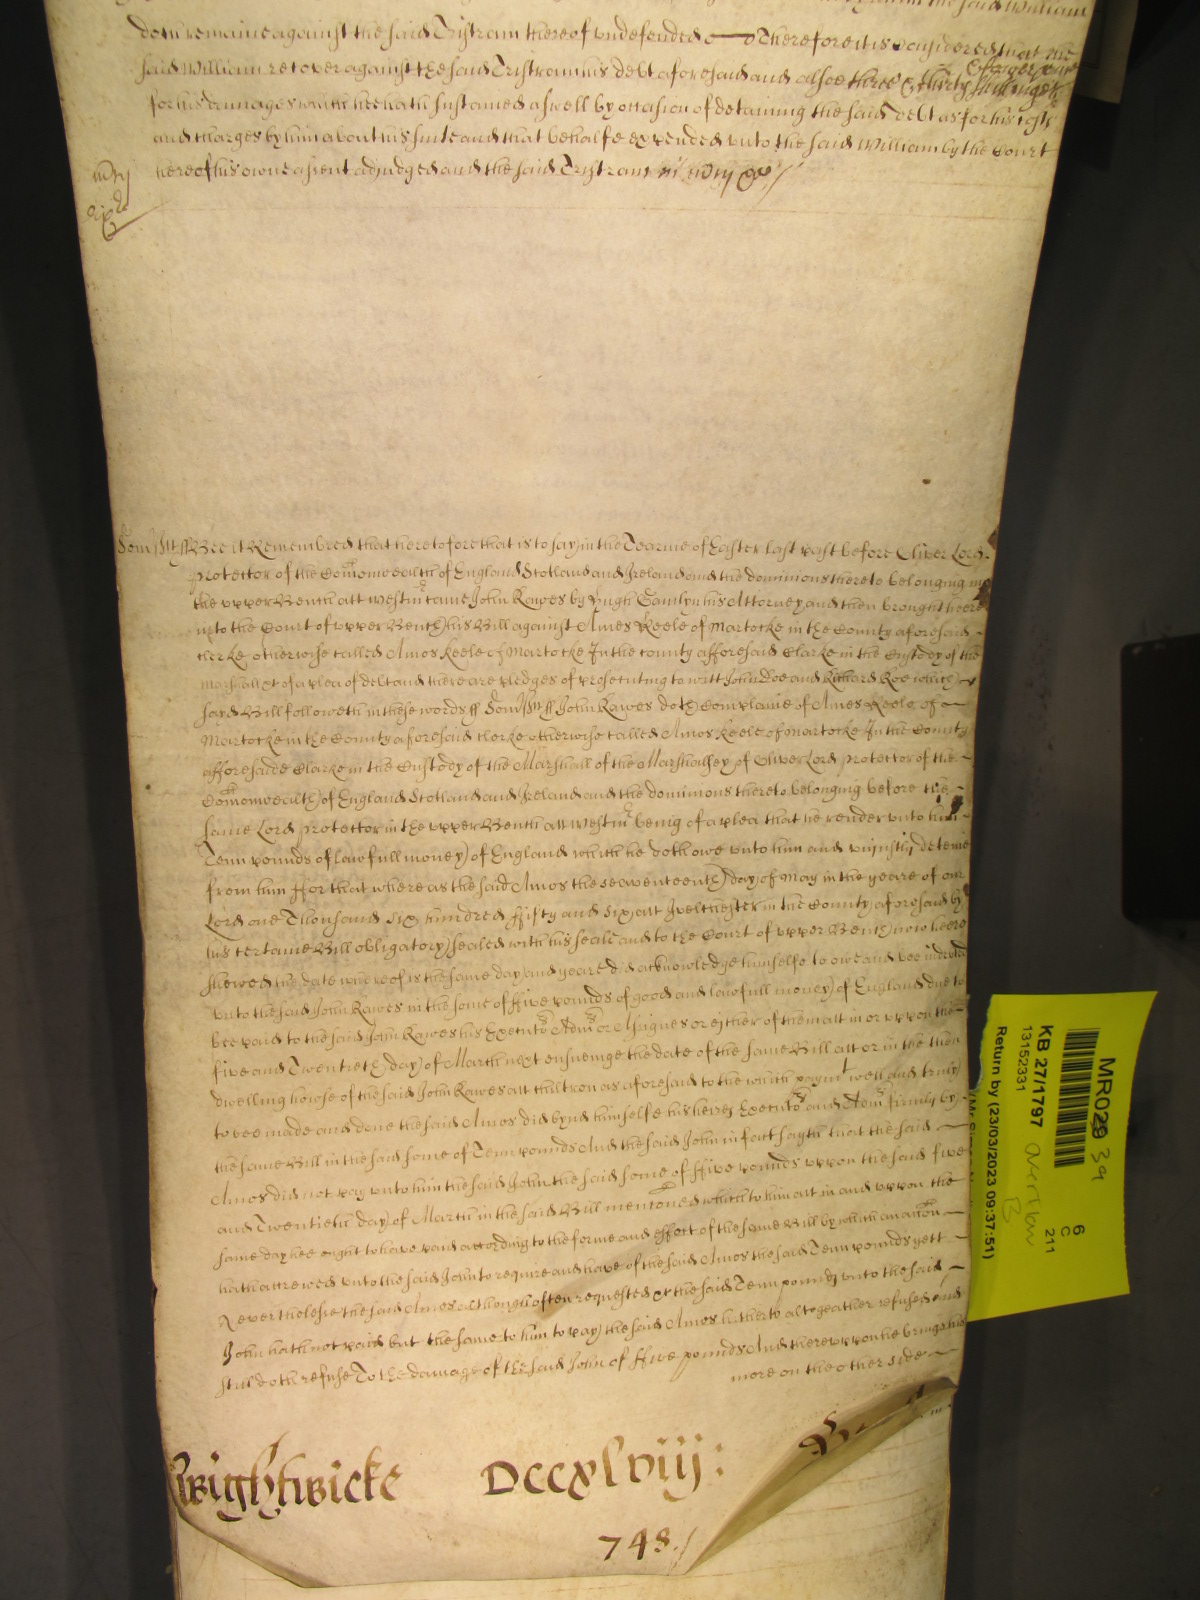 the said William
doth remaine against the said Tristram thereof undefended Therefore it is considered that the
said William recover against the said Tristram his debt aforesaid and alsoe three & thirty shillings
for his damages which hee hath sustained aswell by occasion of detaining the said debt as for his costs
and charges by him about his suite and that behalfe expended unto the said William by the Court
hereof his owne assent adjudged and the said Tristram in mcy &c
mcy
Som sstt ss Bee it Remembred that heretofore that is to say in the Tearme of Easter last past before Oliver Lord
Protector of the Comonwealth of England Scotland and Ireland and the dominions thereto belonging in
the upper Bench att Westm came John Rawes by Hugh Gamlyn his Attorney and then brought heere
unto the Court of upper Bench his Bill against Amos Keele of Martocke in the County aforesaid
clerke otherwise called Amos Keele of Martocke In the county afforesaid Clarke in the Custody of the
Marshall &c of a plea of debt and there are pledges of prosecuting to witt John Doe and Richard Roe which
sayd Bill followeth in these words ss Som sstt ss John Rawes doth Complaine of Amos Keele of
Martocke in the County aforesaid clerke otherwise called Amos Keele of Martocke In the County
afforesaide Clarke in the Custody of the Marshall of the Marshallsey of Oliver Lord Protector of the
Comonwealth of England Scotland and Ireland and the dominions thereto belonging before the
same Lord Protector in the upper Bench att Westm being of a plea that he render unto him
Tenn pounds of lawfull money of England which he doth owe unto him and unjustly deteine
from him ffor that whereas the said Amos the seaventeenth day of May in the yeare of our
Lord one Thousand six hundred ffifty and six att Ivelchester in the County aforesaid by
his certaine Bill obligatory sealed with his seale and to the Court of upper Bench now heere
shewed the date whereof is the same day and yeare did acknowledge himselfe to owe and bee indebted
unto the said John Rawes in the some of ffive pounds of good and lawfull money of England due to
bee paid to the said John Rawes his Executos Adms or Assignes or either of them att in or uppon the
five and Twentieth day of March next ensueinge the date of the same Bill att or in the then
dwelling howse of the said John Rawes att as aforesaid to the which paymt well and truly
to bee made and done the said Amos did bynd himselfe his heires Executos and Adms firmly by
the same Bill in the said some of Tenn pounds And the said John in fact sayth that the said
Amos did not pay unto him the said John the said some of ffive pounds uppon the said five
and Twentieth day of March in the said Bill mentoned which to him att in and uppon the
same day hee ought to have paid according to the forme and effect of the same Bill by which an accon
hath accrewed unto the said John to require and have of the said Amos the said Tenn pounds yett
Neverthelesse the said Amos although often requested &c the said Tenn pounds unto the said
John hath not paid but the same to him to pay the said Amos hitherto altogeather refused and
still doth refuse To the damage of the said John of ffive pounds And thereuppon he brings his
more on the other side
Wightwicke DCCxlviij:
748./
MR029 39
KB 27/1797
13152331
Return by (23/03/2023 09:37:51)
overflow
B
6
C
211